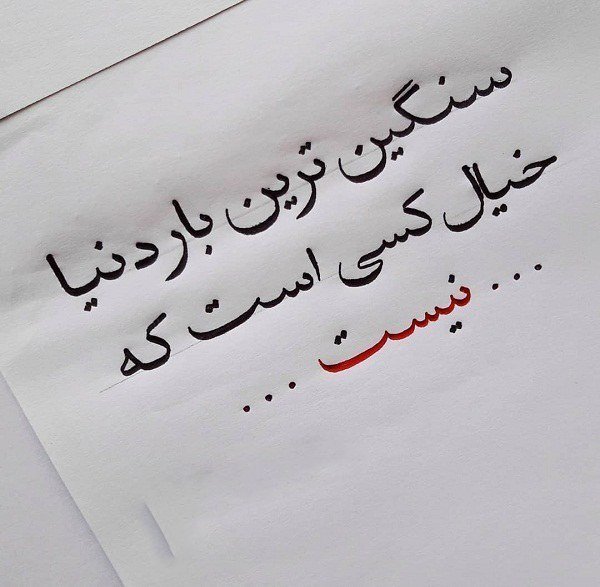 سنگین ترین بار دنیا
خیال کسی است که
... نیست ...